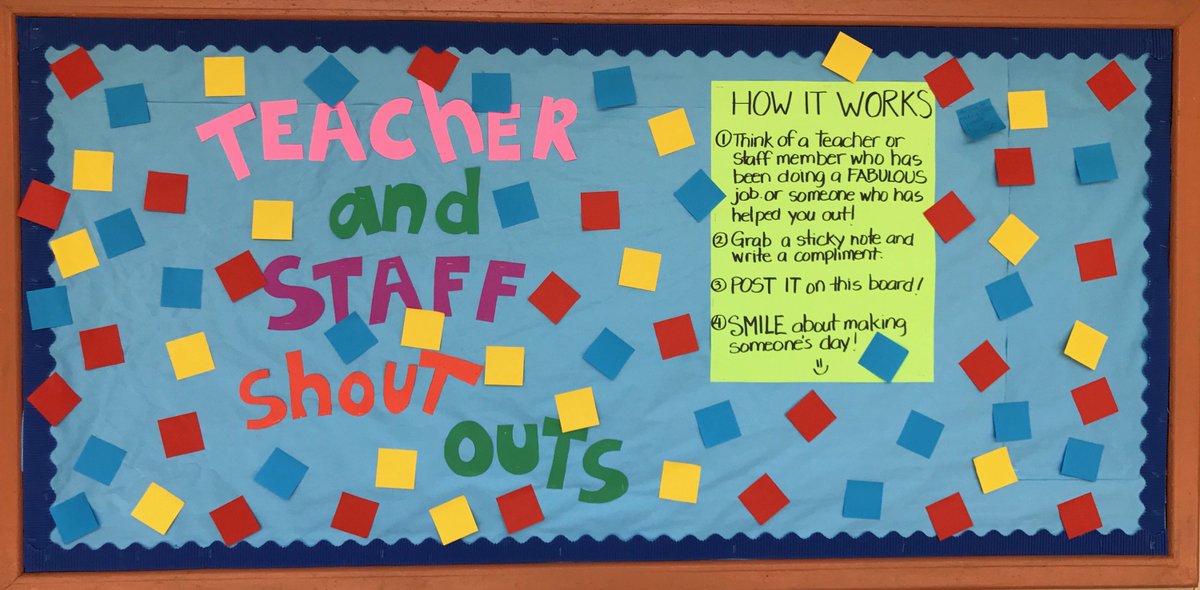 TEACHER
and
STAFF
Shout
OUTS
HOW IT WORKS
① Think of a Teacher or
staff member who has
been doing a FABULOUS
job or someone who has
helped you out!
② Grab a sticky note and
write a compliment.
③ POST IT on this board!
④ SMILE about making
someone's day!